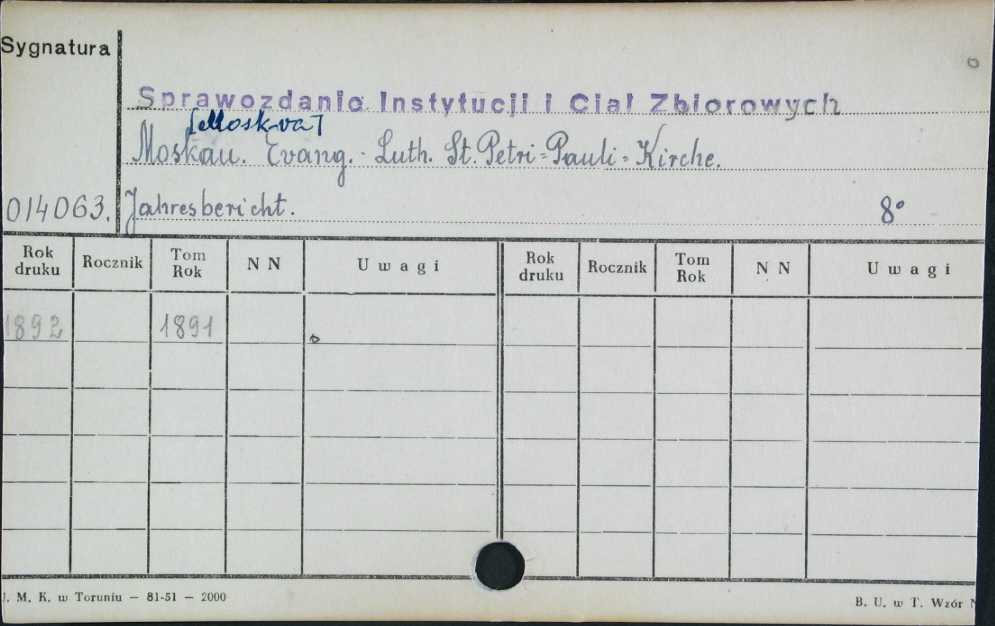 Sygnatura
Sprawozdania Instytucji i Ciał Zbiorowych
[Moskva]
Moskau. Evang.-Luth. St. Petri-Pauli-Kirche.
014063. Jahresbericht. 8°
Rok druku Rocznik Tom Rok N N Uwagi Rok druku Rocznik Tom Rok N N Uwagi
1892 1891
U. M. K. w Toruniu — 81-51 — 2000 B. U. w T. Wzór